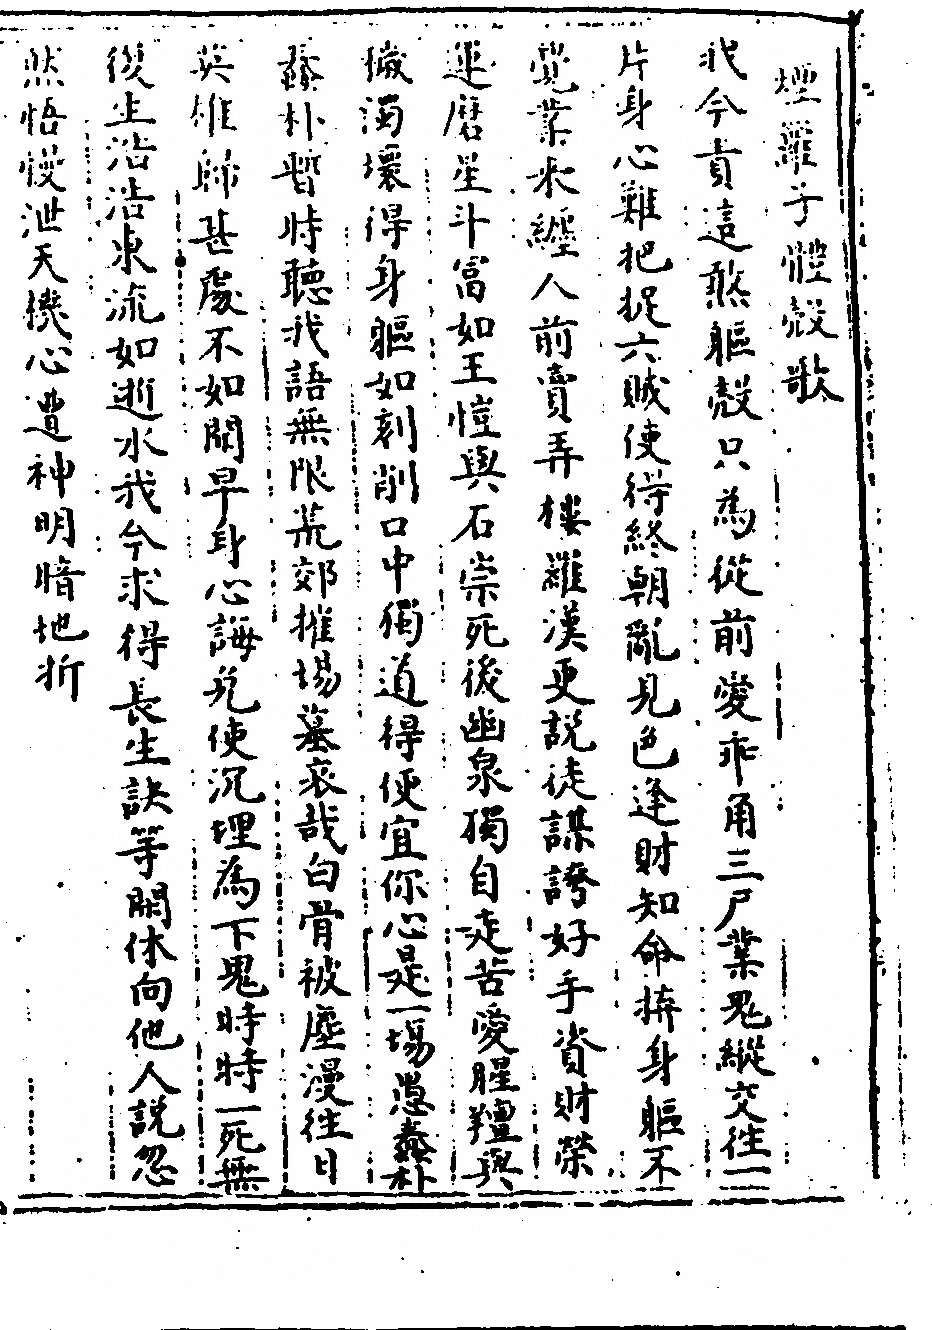 煙羅子體殼歌
我今責這憨軀殼只為從前愛乖角三尸業鬼縱交往一
片身心難把捉六賊使得終朝亂見色逢財知命拚身軀不
覺業來纏人前賣弄摟羅漢更說徒謀誇好手資財榮
運磨星斗富如王愷與石崇死後幽泉獨自走苦愛腥羶與
穢濁壞得身軀如刻削口中獨道得便宜你心是一場蠢朴
蠢朴暫時聽我語無限荒郊摧塲墓哀哉白骨被塵漫往日
英雄歸甚處不如聞早身心誨免使沉埋為下鬼時時一死無
後生沾浩東流如逝水我今求得長生訣等閑休向他人說忽
然悟慢泄天機心遭神明暗地折